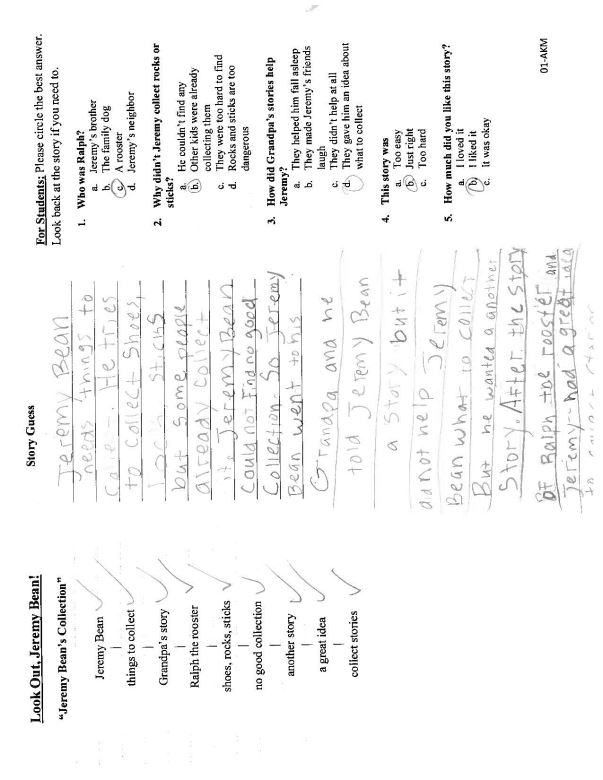 Look Out, Jeremy Bean!
"Jeremy Bean's Collection"
Jeremy Bean
things to collect
Grandpa's story
Ralph the rooster
shoes, rocks, sticks
no good collection
another story
a great idea
collect stories
Story Guess
Jeremy Bean
needs things to
He tries
to collect Shoes,
sticks
but some people
already collect
it. Jeremy Bean
could not find no good
collection. So Jeremy
Bean went to his
Grandpa and he
told Jeremy Bean
a story but it
did not help Jeremy
Bean what to collect
But he wanted a another
Story. After the story
of Ralph the rooster and
Jeremy had a great idea
to collect
For Students: Please circle the best answer.
Look back at the story if you need to.
1. Who was Ralph?
a. Jeremy's brother
b. The family dog
c. A rooster
d. Jeremy's neighbor
2. Why didn't Jeremy collect rocks or
sticks?
a. He couldn't find any
b. Other kids were already
collecting them
c. They were too hard to find
d. Rocks and sticks are too
dangerous
3. How did Grandpa's stories help
Jeremy?
a. They helped him fall asleep
b. They made Jeremy's friends
laugh
c. They didn't help at all
d. They gave him an idea about
what to collect
4. This story was
a. Too easy
b. Just right
c. Too hard
5. How much did you like this story?
a. I loved it
b. I liked it
c. It was okay
01-AKM